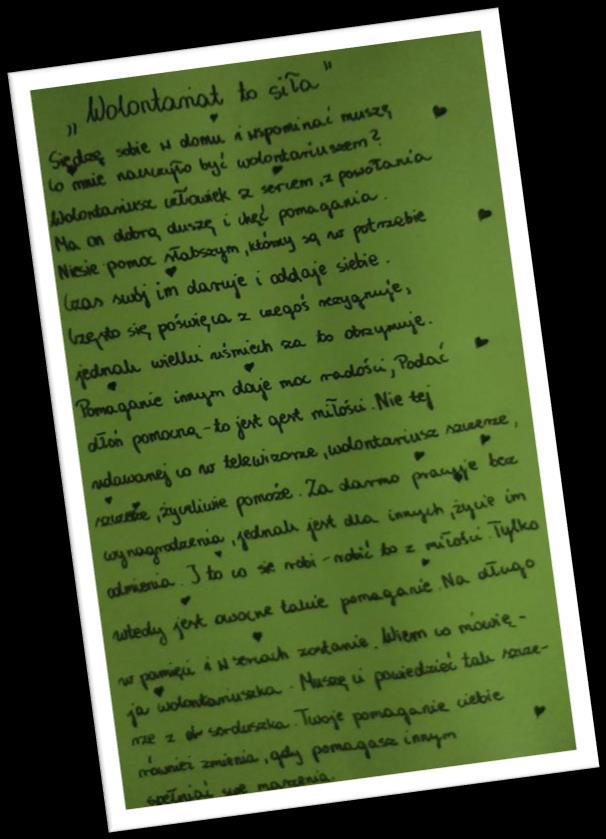 „Wolontariat to siła”
Siędzę sobie w domu i wspominać muszę
co mnie nauczyło być wolontariuszem?
Wolontariusz człowiek z sercem, z powołania
Ma on dobrą duszę i chęć pomagania.
Niesie pomoc słabszym, którzy są w potrzebie
Czas swój im daruje i oddaje siebie.
Często się poświęca z czegoś rezygnuje,
jednak wielki uśmiech za to otrzymuje.
Pomaganie innym daje moc radości, Podać
dłoń pomocną - to jest gest miłości. Nie tej
udawanej co w telewizorze, wolontariusz szczerze,
szczerze, życzliwie pomoże. Za darmo pracuje bez
wynagrodzenia, jednak jest dla innych, życie im
odmienia. I to co się robi - robić to z miłości. Tylko
wtedy jest owocne takie pomaganie. Na długo
w pamięci i w sercach zostanie. Wiem co mówię -
ja wolontariuszka. Muszę ci powiedzieć tak szcze-
rze z serduszka. Twoje pomaganie ciebie
również zmienia, gdy pomagasz innym
spełniać swe marzenia.